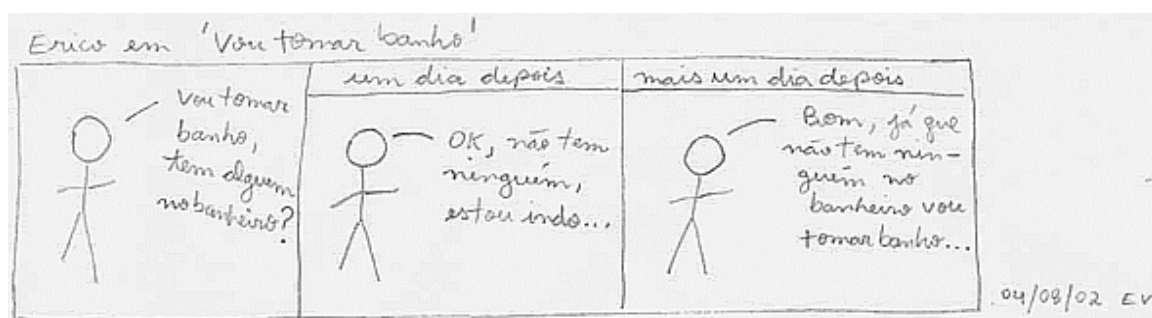 Erico em 'Vou tomar banho'
Vou tomar
banho,
tem alguem
no banheiro?
um dia depois
OK, não tem
ninguém,
estou indo...
mais um dia depois
Bom, já que
não tem nin-
guém no
banheiro vou
tomar banho...
04/08/02 EV